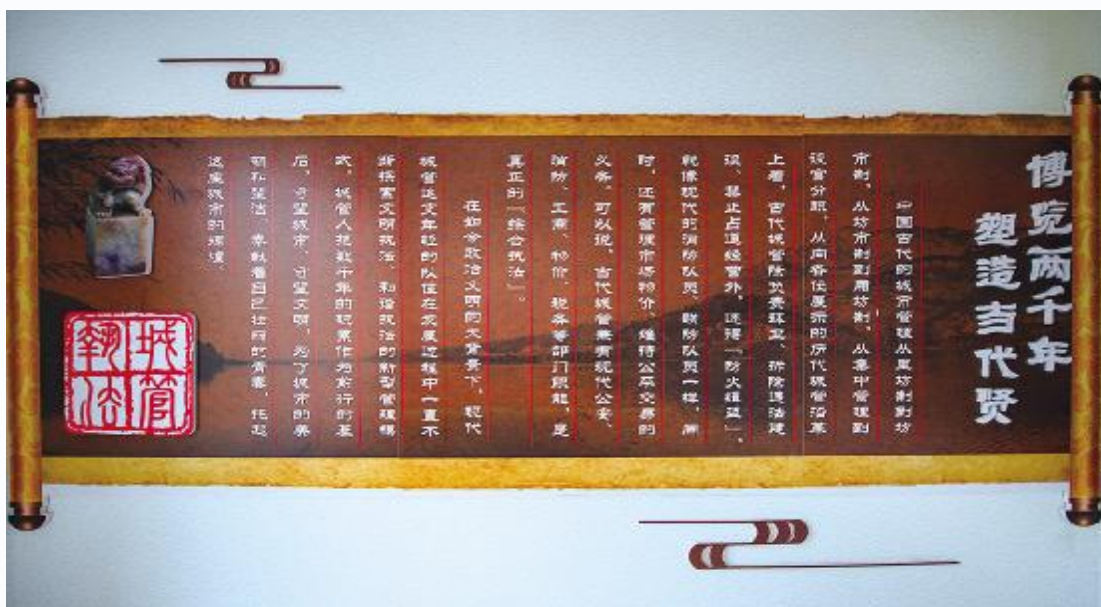 博览两千年
塑造当代贤
中国古代的城市管理从里坊制到坊
市制，从坊市制到厢坊制，从集中管理到
设官分职。从向各位展示的历代城管沿革
上看，古代城管除负责环卫、拆除违法建
设、禁止占道经营外，还得「防火缉盗」。
就像现代的消防队员、联防队员一样，同
时，还有管理市场物价、维持公平交易的
义务。可以说，古代城管兼有现代公安、
消防、工商、物价、税务等部门职能，是
真正的「综合执法」。
在如今政治文明的大背景下，现代
城管这支年轻的队伍在发展过程中一直不
断探索文明执法、和谐执法的新型管理模
式。城管人把数千年的积累作为前行的基
后，守望城市，守望文明，为了城市的美
丽和坚洁，奉献着自己壮丽的青春，托起
这座城市的辉煌。
城管
执法